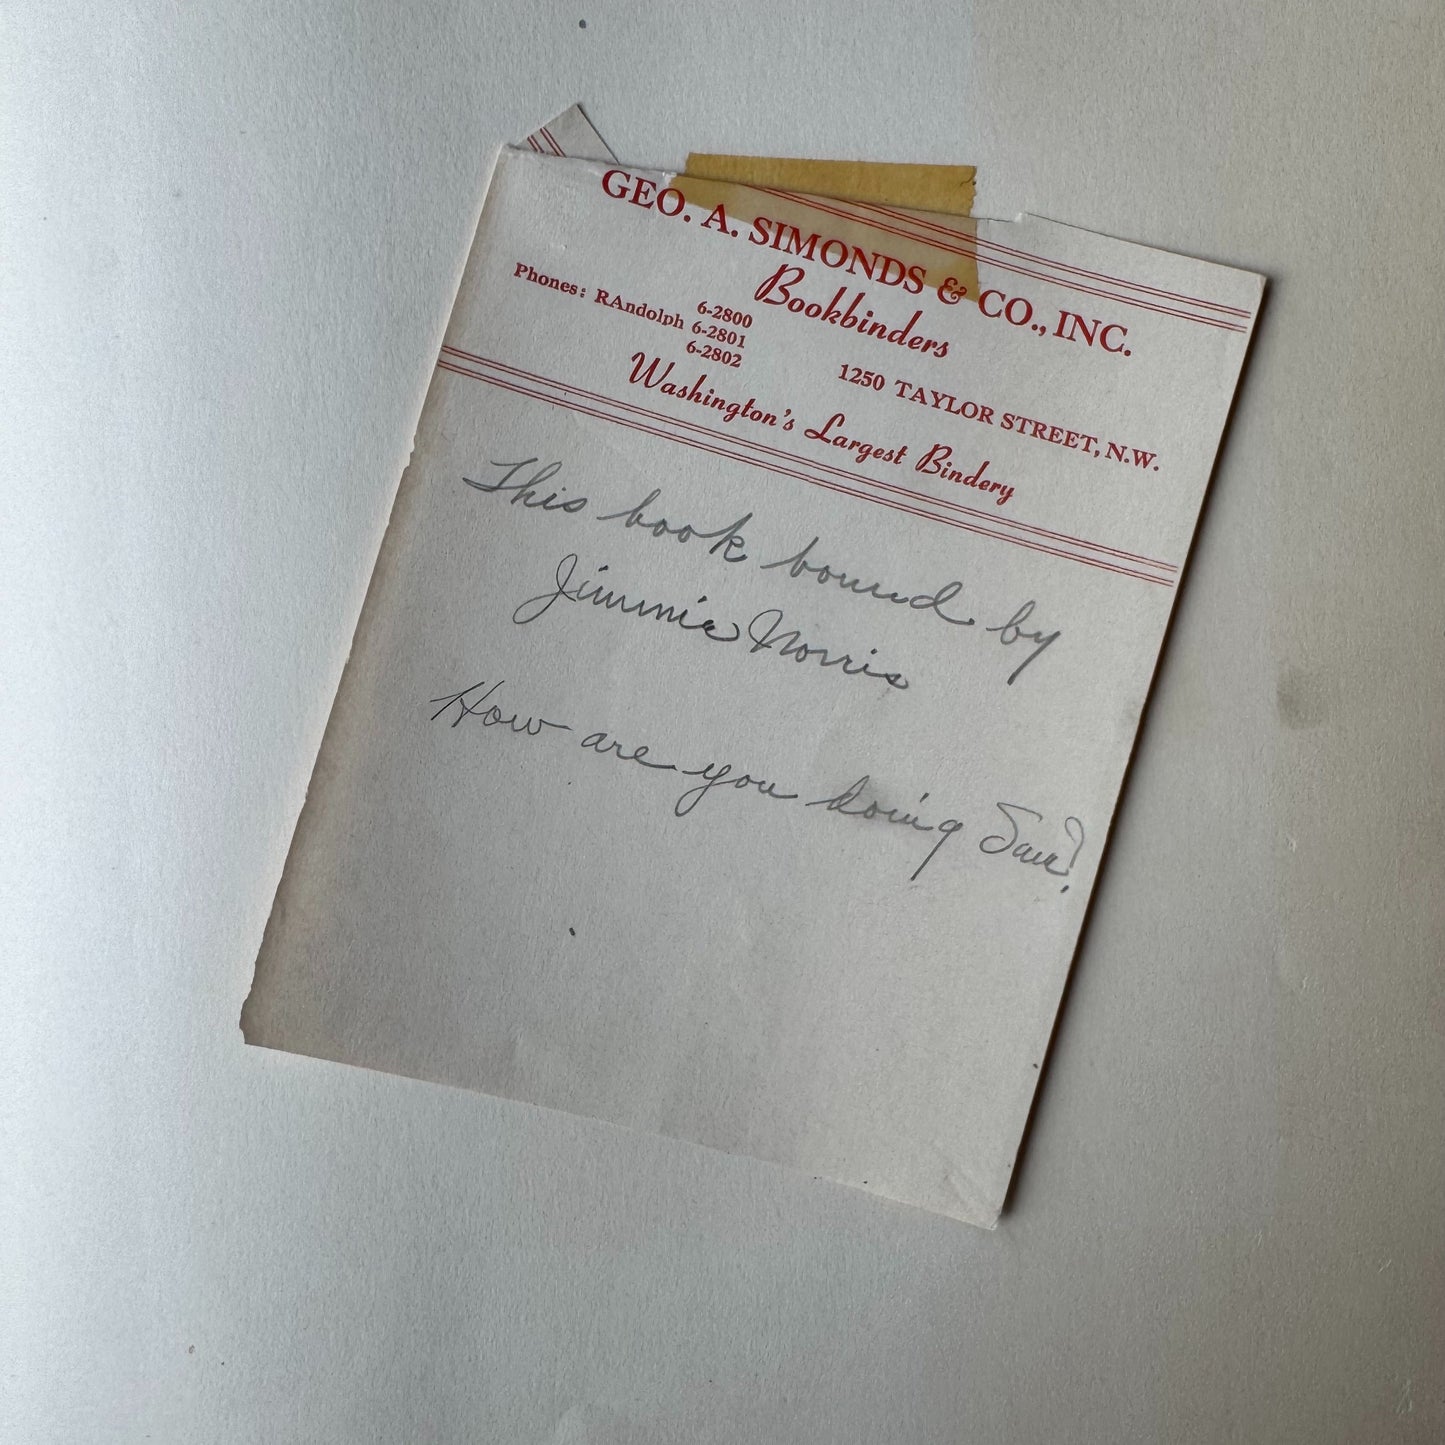 GEO. A. SIMONDS & CO., INC.
Bookbinders
Phones: RAndolph 6-2800
6-2801
6-2802
1250 TAYLOR STREET, N.W.
Washington's Largest Bindery
This book bound by
Jimmie Norris
How are you doing Sam?